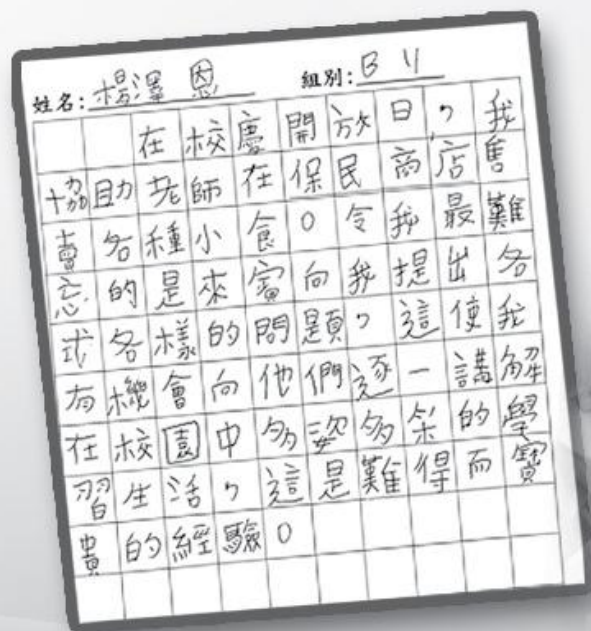 姓名:楊澤恩 組別:B4
在校慶開放日,我
協助老師在保民商店售
賣各種小食。令我最難
忘的是來賓向我提出各
式各樣的問題,這使我
有機會向他們逐一講解
在校園中多姿多采的學
習生活,這是難得而寶
貴的經驗。